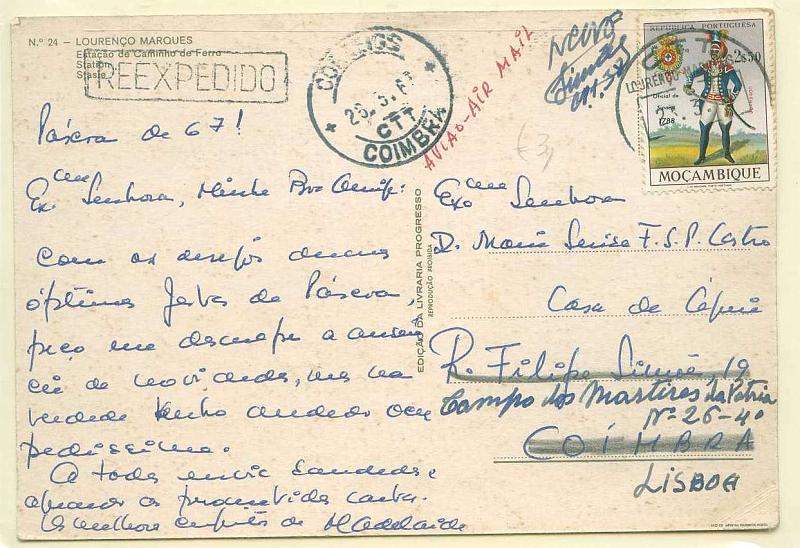 N.º 24 – LOURENÇO MARQUES
Estação de Caminho de Ferro
Station
Stasie
REEXPEDIDO
CORREIOS
CTT
COIMBRA
AVIÃO-AIR MAIL
REPÚBLICA PORTUGUESA
2$50
CTT
LOURENÇO MARQUES
Oficial de
1788
MOÇAMBIQUE
Páscoa de 67!
Exma Senhora, Minha Boa Amiga:
Com os desejos dumas
óptimas festas de Páscoa,
peço me desculpe a ausên
cia de novidades, mas na
verdade tenho andado ocu
padíssima.
A todos envio saudades e
aguardo a prometida carta.
Os melhores cumptos da MAdelaide
EDIÇÃO DA LIVRARIA PROGRESSO
REPRODUÇÃO PROIBIDA
Exma Senhora
D. Maria Luisa F.S.P. Castro
Casa de
R. Filipe Simões, 19
Campo dos Martires da Pátria
Nº 26-4º
COÍMBRA
LISBOA